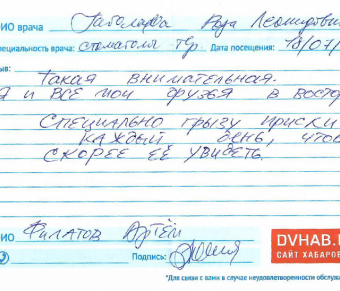 ИО врача Габолаева Роза Леонидовн
пециальность врача: стоматолог тер Дата посещения: 18/07/
ыв:
Такая внимательная.
Я и все мои друзья в востор
Специально грызу ириски
каждый день, чтоб
скорее её увидеть.
ИО Филатов Артём
Подпись:
DVHAB.R
САЙТ ХАБАРОВ
*Для связи с вами в случае неудовлетворенности обслужи